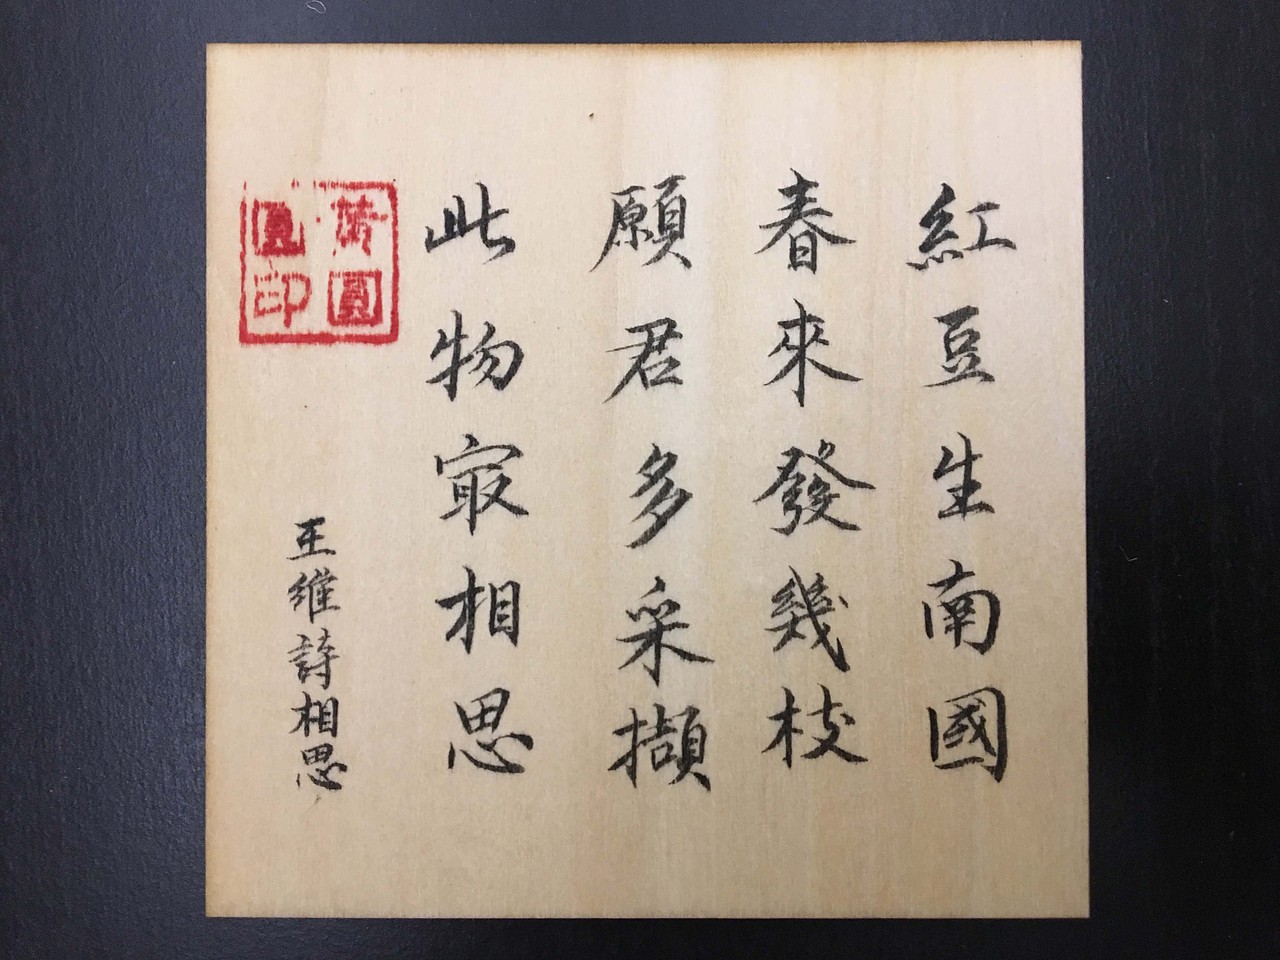 紅豆生南國
春來發幾枝
願君多采擷
此物冣相思
王維詩相思
圓
印